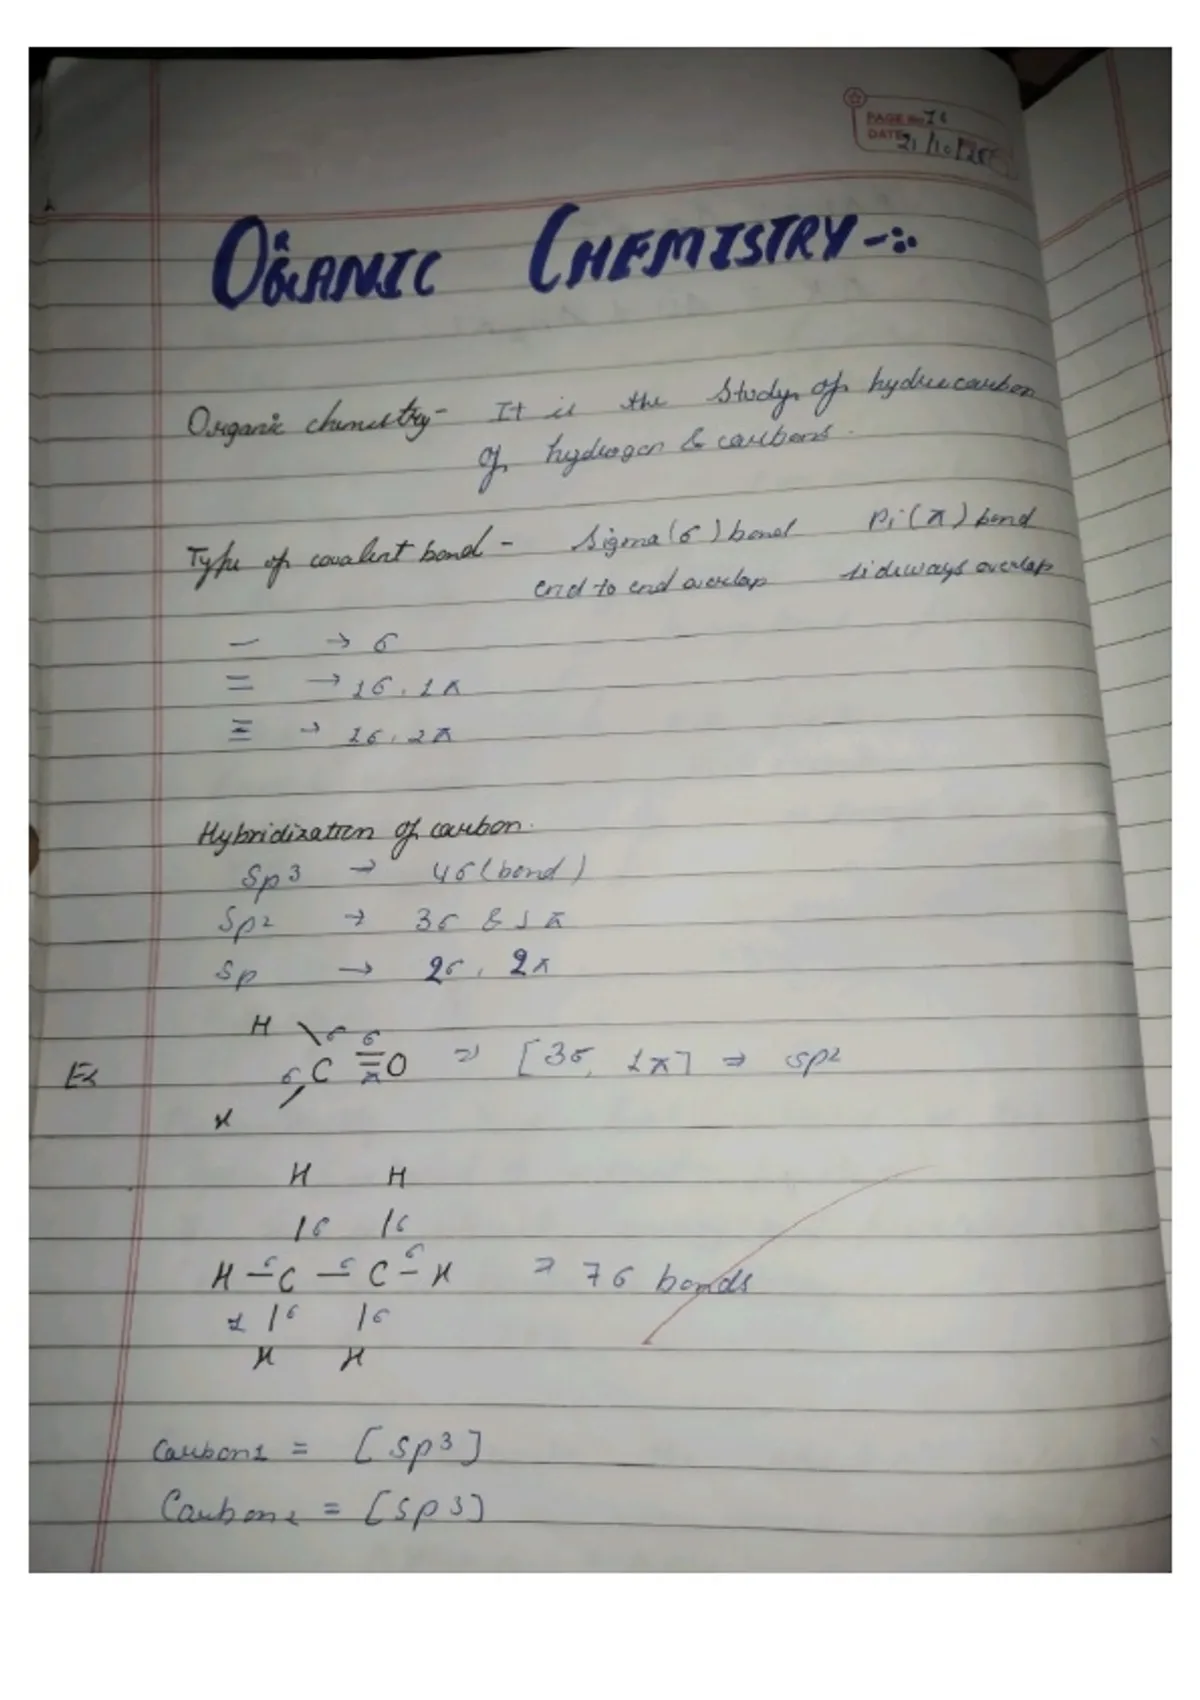 PAGE No
DATE 21/10/25
ORGANIC CHEMISTRY -:
Organic chemistry - It is the study of hydrocarbon
of hydrogen & carbons.
Type of covalent bond - Sigma (σ) bond Pi (π) bond
end to end overlap sideways overlap
— → σ
= → 1σ, 1π
≡ → 1σ, 2π
Hybridization of carbon.
Sp3 → 4σ (bond)
Sp2 → 3σ & 1π
Sp → 2σ, 2π
H σ σ
Ex σ C = O ⇒ [3σ, 1π] ⇒ sp2
H π
H H
|σ |σ
H —σ C —σ C —σ H ⇒ 7σ bonds
1 |σ |σ
H H
Carbon1 = [sp3]
Carbon2 = [sp3]